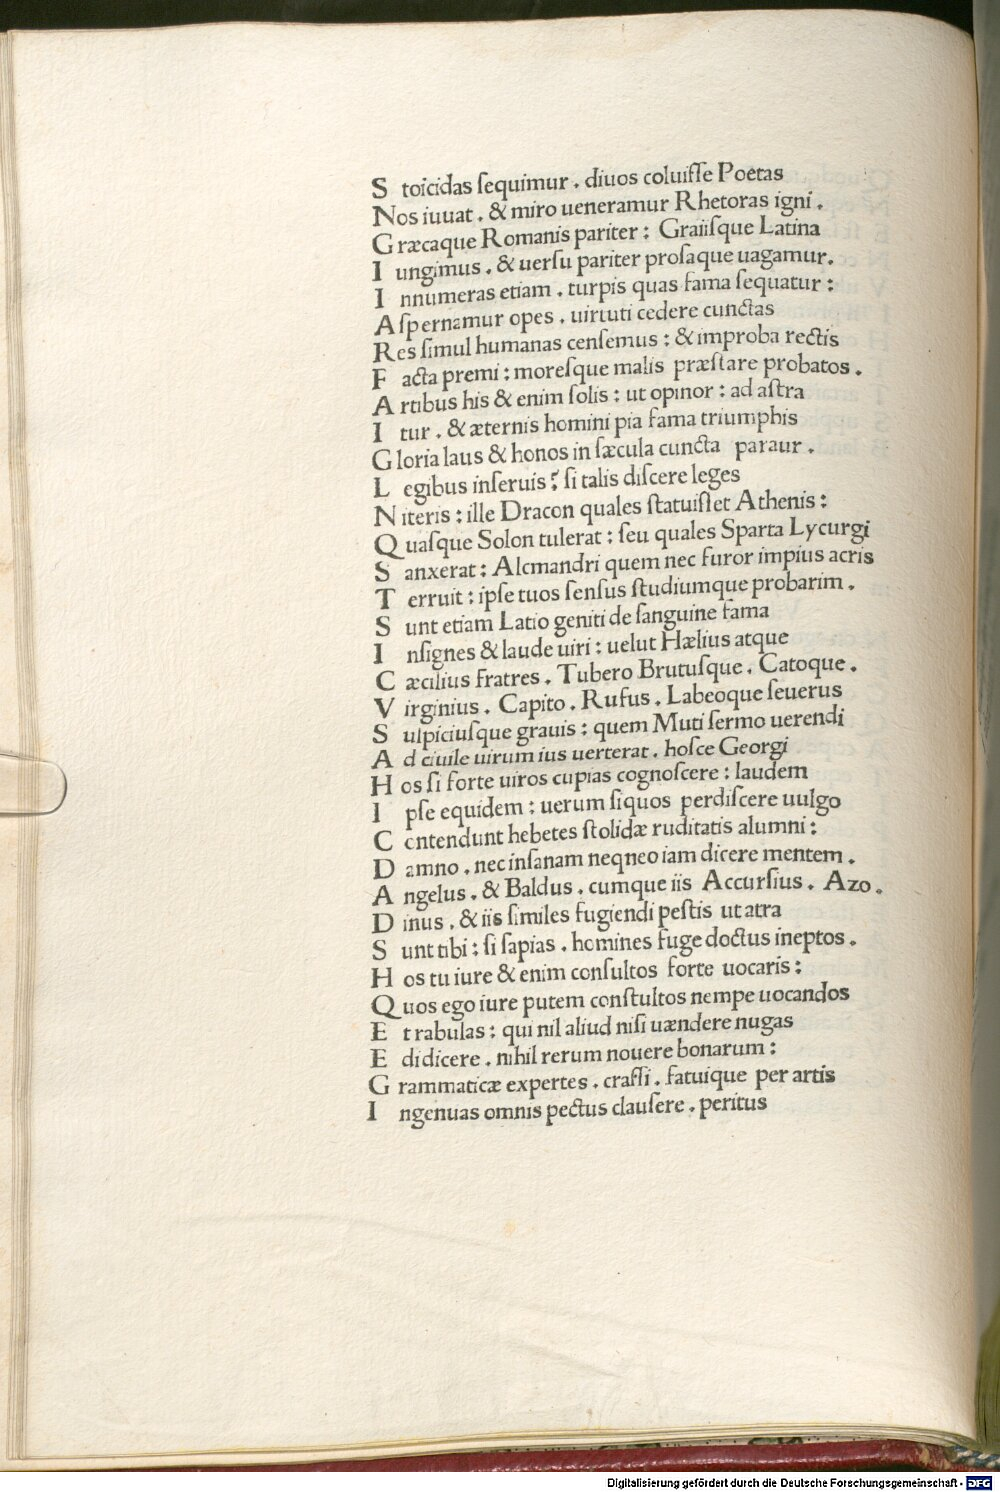 S toicidas ſequimur . diuos coluiſſe Poetas
Nos iuuat . & miro ueneramur Rhetoras igni .
G ræcaque Romanis pariter : Graiiſque Latina
I ungimus . & uerſu pariter proſaque uagamur.
I nnumeras etiam . turpis quas fama ſequatur :
A ſpernamur opes . uirtuti cedere cunctas
R es ſimul humanas cenſemus : & improba rectis
F acta premi : moreſque malis præſtare probatos .
A rtibus his & enim ſolis : ut opinor : ad aſtra
I tur . & æternis homini pia fama triumphis
G loria laus & honos in ſæcula cuncta paraur .
L egibus inſeruis ? ſi talis diſcere leges
N iteris : ille Dracon quales ſtatuiſſet Athenis :
Q uaſque Solon tulerat : ſeu quales Sparta Lycurgi
S anxerat : Alcmandri quem nec furor impius acris
T erruit : ipſe tuos ſenſus ſtudiumque probarim .
S unt etiam Latio geniti de ſanguine fama
I nſignes & laude uiri : uelut Hælius atque
C æcilius fratres . Tubero Brutuſque . Catoque .
V irginius . Capito . Rufus . Labeoque ſeuerus
S ulpiciuſque grauis : quem Muti ſermo uerendi
A d ciuile uirum ius uerterat . hoſce Georgi
H os ſi forte uiros cupias cognoſcere : laudem
I pſe equidem : uerum ſiquos perdiſcere uulgo
C cntendunt hebetes ſtolidæ ruditatis alumni :
D amno . nec inſanam neqneo iam dicere mentem .
A ngelus . & Baldus . cumque iis Accurſius . Azo .
D inus . & iis ſimiles fugiendi peſtis ut atra
S unt tibi : ſi ſapias . homines fuge doctus ineptos .
H os tu iure & enim conſultos forte uocaris :
Q uos ego iure putem conſtultos nempe uocandos
E t rabulas : qui nil aliud niſi uændere nugas
E didicere . nihil rerum nouere bonarum :
G rammaticæ expertes . craſſi . fatuique per artis
I ngenuas omnis pectus clauſere . peritus
Digitalisierung gefördert durch die Deutsche Forschungsgemeinschaft - DFG